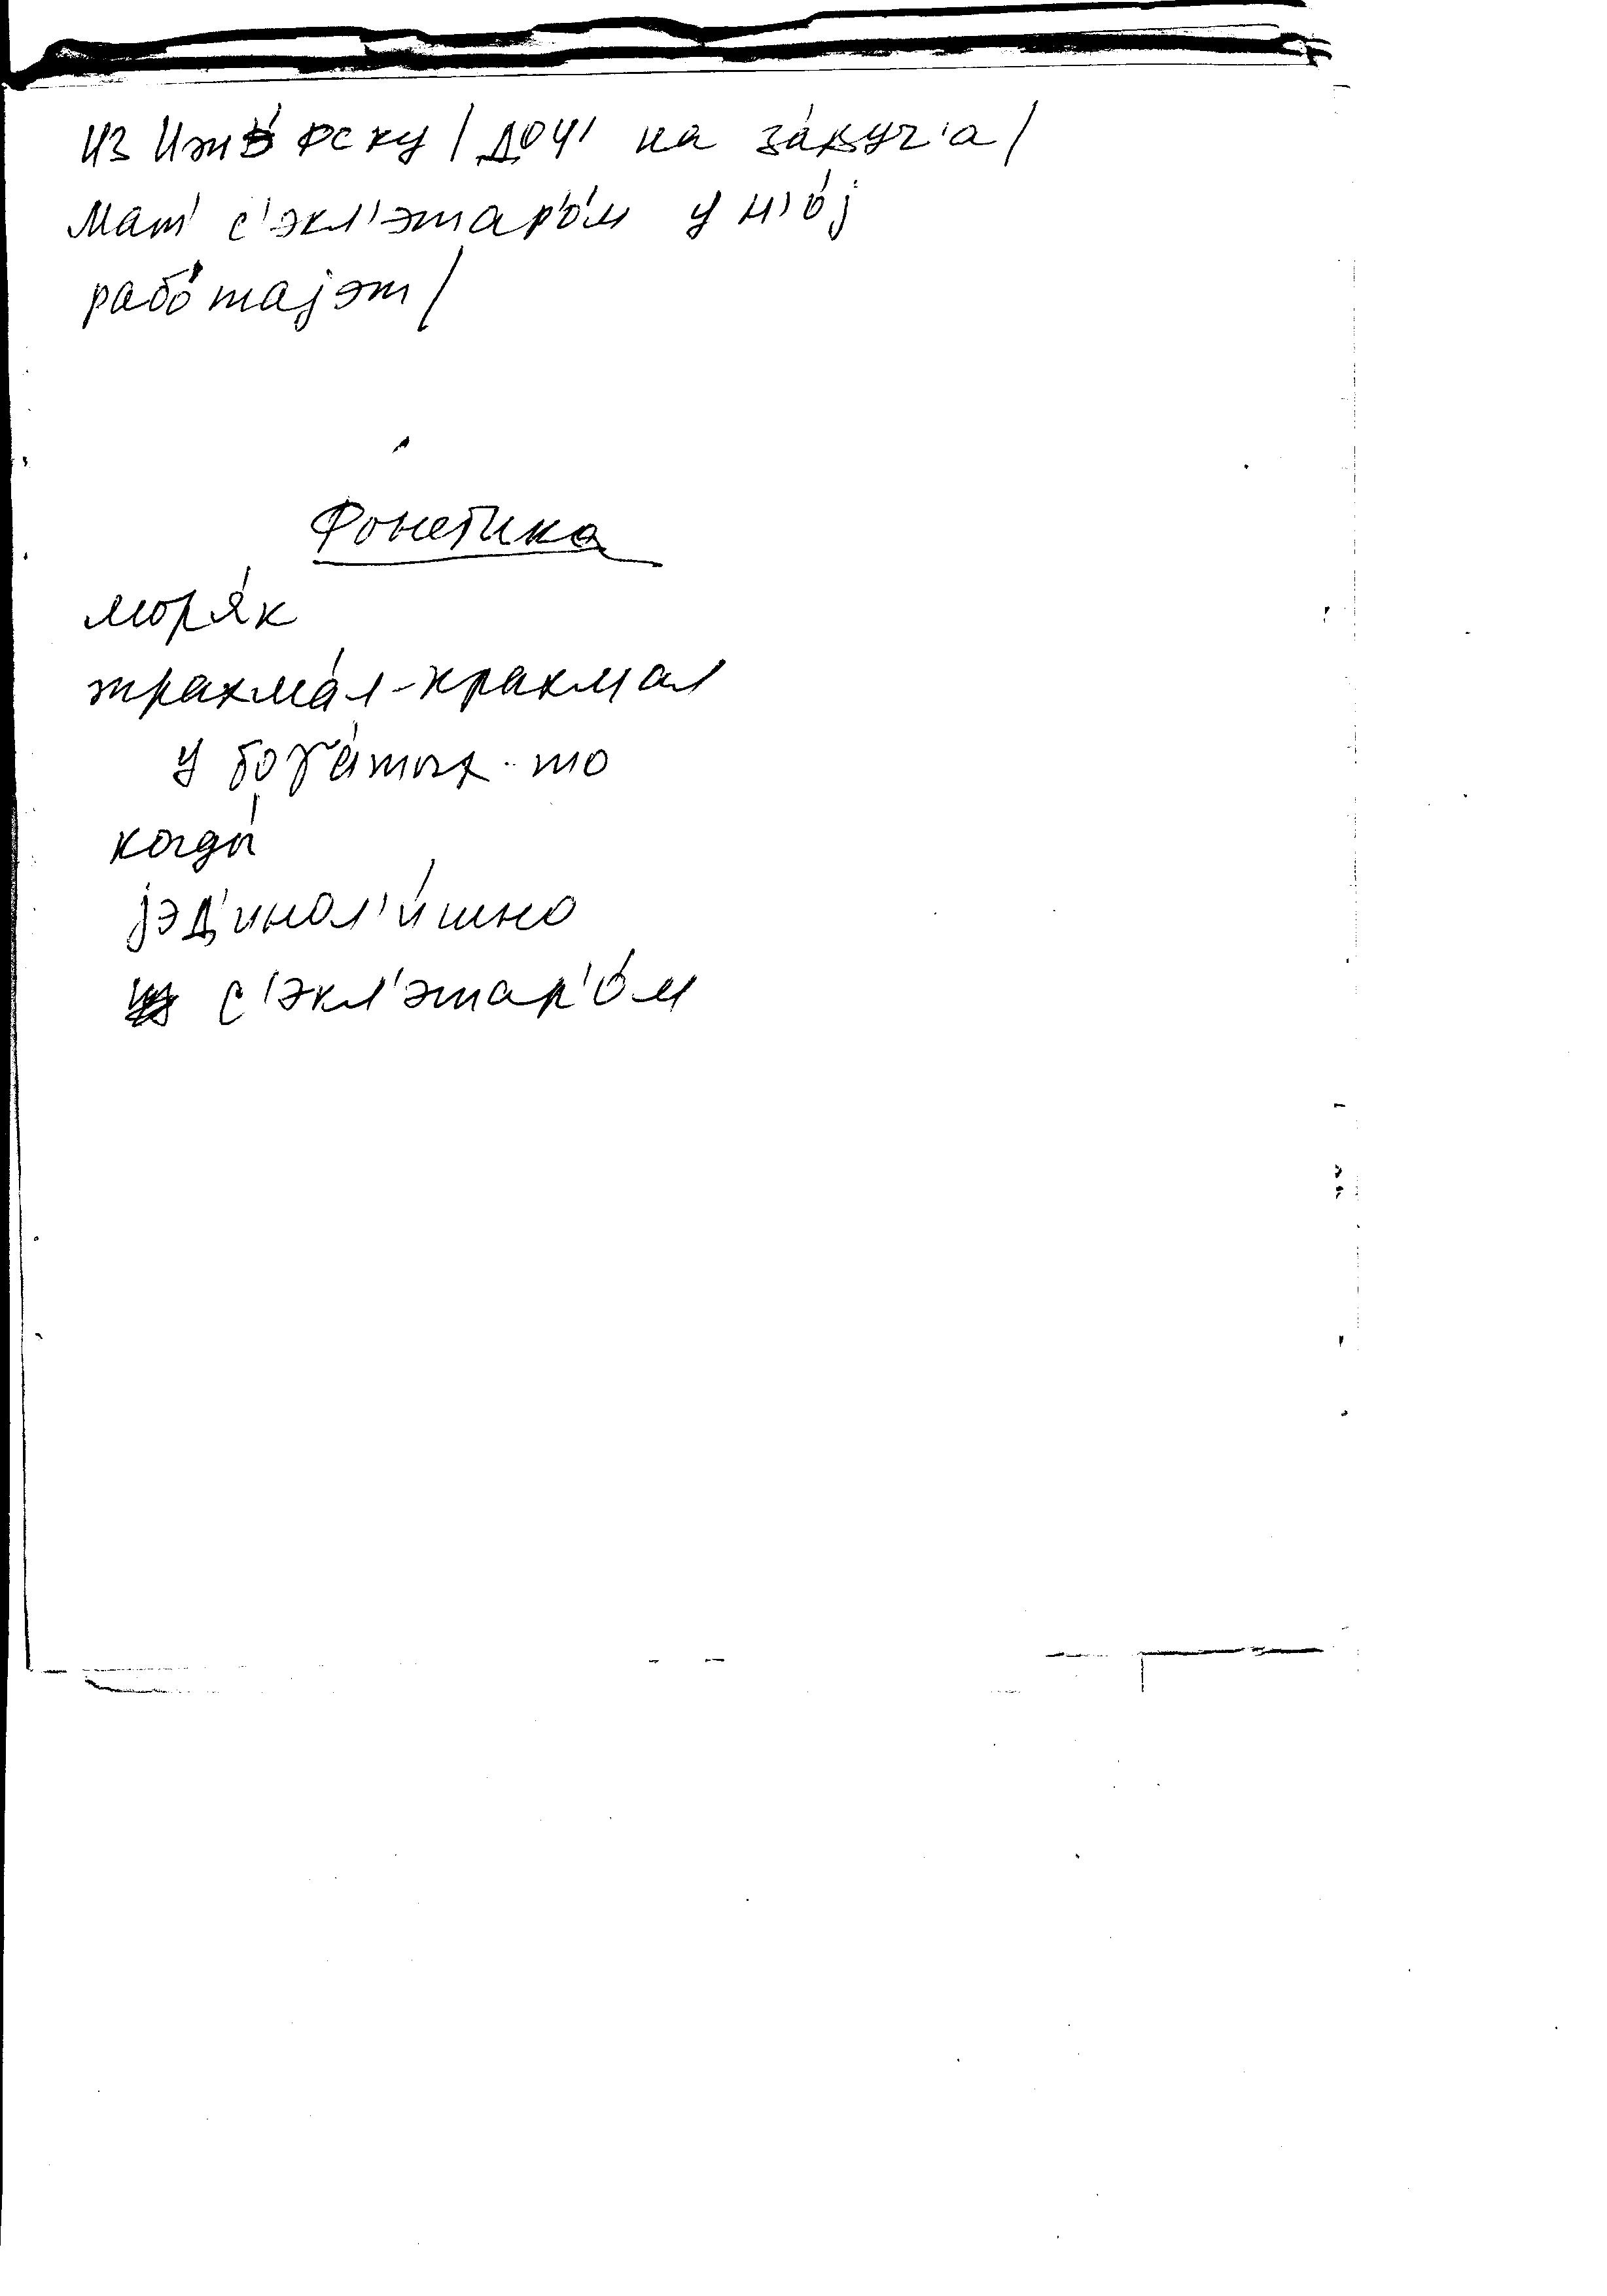 из Ижо́рску / доч' на за́вуч'а /
мат' с'экл'этар'о́м у н'о́j
рабо́таjэт /
Фонетика
моря́к
трахма́л - крахмал
у боγа́тых-то
когды́
jэд'инол'и́шно
с'экл'этар'о́м